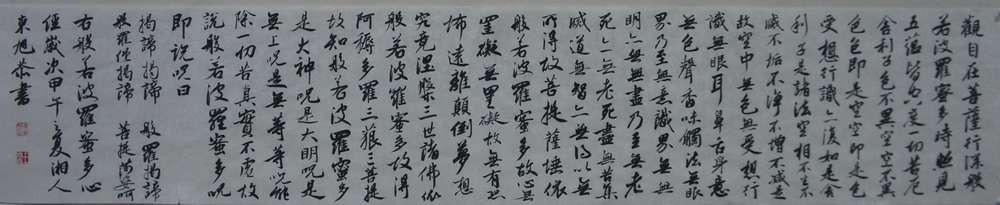 觀自在菩薩行深般
若波羅蜜多時照見
五蘊皆空度一切苦厄
舍利子色不異空空不異
色色即是空空即是色
受想行識亦復如是舍
利子是諸法空相不生不
滅不垢不淨不增不減是
故空中無色無受想行
識無眼耳鼻舌身意
無色聲香味觸法無眼
界乃至無意識界無無
明亦無無明盡乃至無老
死亦無老死盡無苦集
滅道無智亦無得以無
所得故菩提薩埵依
般若波羅蜜多故心無
罣礙無罣礙故無有恐
怖遠離顛倒夢想
究竟涅槃三世諸佛依
般若波羅蜜多故得
阿耨多羅三藐三菩提
故知般若波羅蜜多
是大神咒是大明咒是
無上咒是無等等咒能
除一切苦真實不虛故
說般若波羅蜜多咒
即說咒曰
揭諦揭諦 般羅揭諦
般羅僧揭諦 菩提薩婆訶
右般若波羅蜜多心
經歲次甲午之夏湘人
東旭恭書